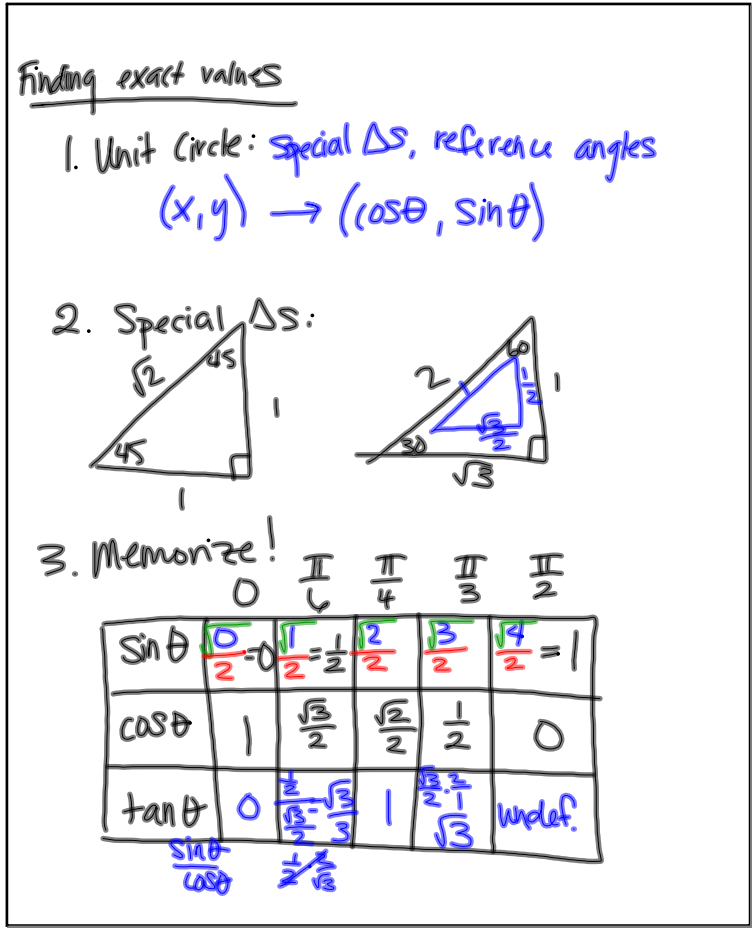 Finding exact values
1. Unit Circle: Special Δs, reference angles
(x, y) → (cosθ, sinθ)
2. Special Δs:
√2 45 1 45 1
2 60 1/2 1 √3/2 30 √3
3. Memorize!
0 π/6 π/4 π/3 π/2
sinθ √0/2 = 0 √1/2 = 1/2 √2/2 √3/2 √4/2 = 1
cosθ 1 √3/2 √2/2 1/2 0
tanθ 0 1/2 / √3/2 = √3/3 1 √3/2 · 2/1 √3 undef.
sinθ/cosθ 1/2 · 2/√3